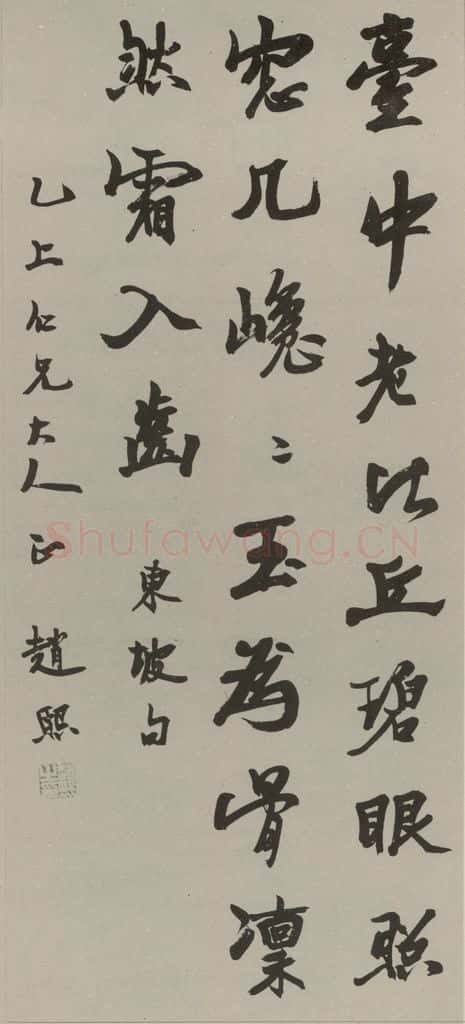 臺中老比丘碧眼照
窓几巉〻玉為骨凛
然霜入齒 東坡句
乙上仁兄大人正 趙熙
Shufawang.CN